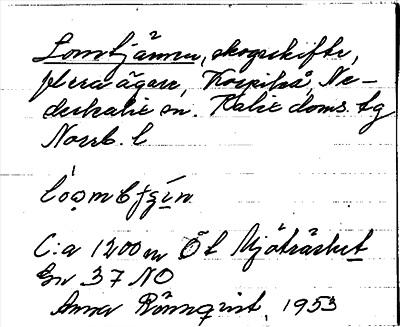 Lomtjänna, skogsskifte,
flera ägare, Korpikå, Ne-
derkalix sn. Kalix doms. tg
Norrb. l
C:a 1200 m Ö t Mjöträsket
Gn 37 NO
Anna Rönnqvist, 1953